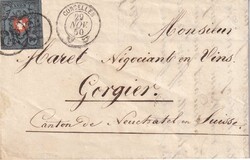 CORCELLES
29
NOV
50
Monsieur
Maret Négociant en Vins.
Gorgier.
Canton de Neuchatel en Suisse